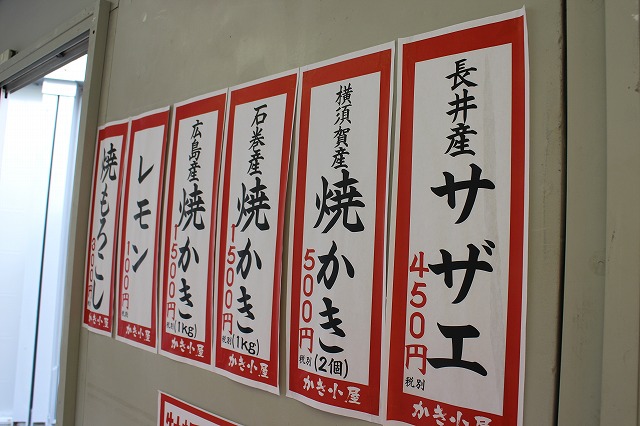 長井産サザエ
450円
税別
かき小屋
横須賀産焼かき
500円
税別(2個)
かき小屋
石巻産焼かき
1500円
税別(1kg)
かき小屋
広島産焼かき
1500円
税別(1kg)
かき小屋
レモン
100円
税別
かき小屋
焼もろこし
300円
かき小屋